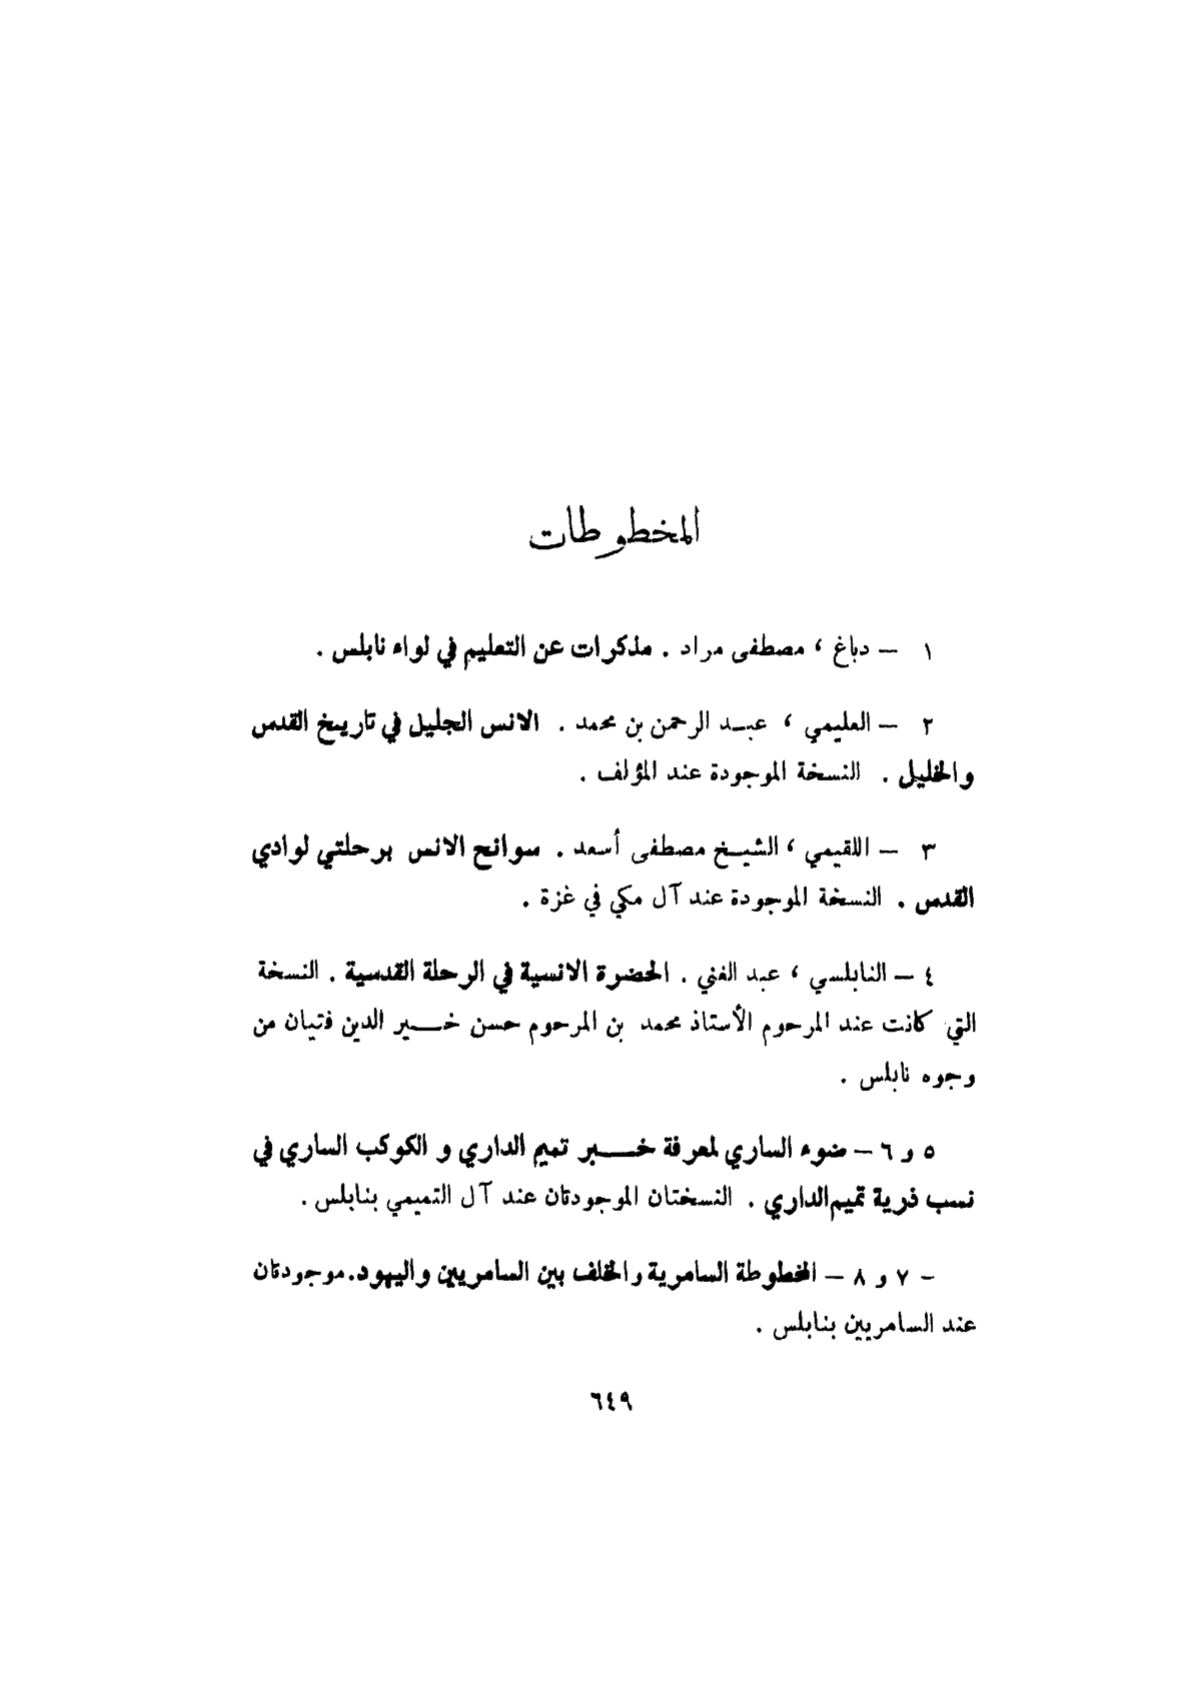 المخطوطات
١ – دباغ ، مصطفى مراد . مذكرات عن التعليم في لواء نابلس .
٢ – العليمي ، عبد الرحمن بن محمد . الانس الجليل في تاريخ القدس
والخليل . النسخة الموجودة عند المؤلف .
٣ – اللقيمي ، الشيخ مصطفى أسعد . سوانح الانس برحلتي لوادي
القدس . النسخة الموجودة عند آل مكي في غزة .
٤ – النابلسي ، عبد الغني . الحضرة الانسية في الرحلة القدسية . النسخة
التي كانت عند المرحوم الأستاذ محمد بن المرحوم حسن خير الدين فتيان من
وجوه نابلس .
٥ و ٦ – ضوء الساري لمعرفة خبر تميم الداري و الكوكب الساري في
نسب ذرية تميم الداري . النسختان الموجودتان عند آل التميمي بنابلس .
– ٧ و ٨ – المخطوطة السامرية والخلف بين السامريين واليهود. موجودتان
عند السامريين بنابلس .
٦٤٩